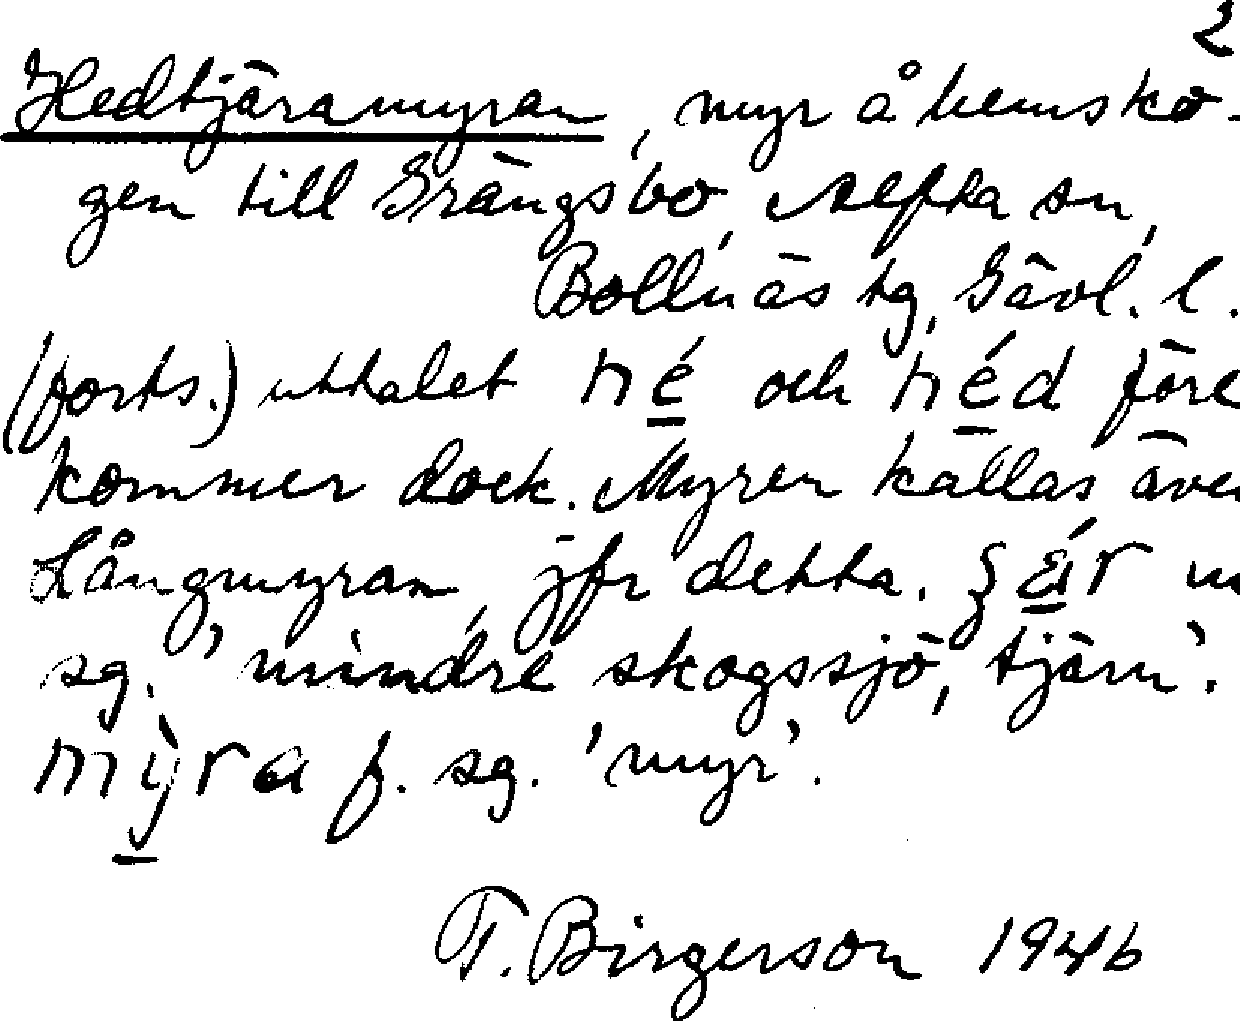 2
Hedtjäramyran, myr å hemsko-
gen till Grängsbo, Alfta sn,
Bollnäs tg, Gävl. l.
(forts.) uttalet hé och héd före
kommer dock. Myren kallas även
Långmyran, jfr detta. m
sg. 'mindre skogssjö, tjärn'.
mỳra f. sg. 'myr'.
T. Birgerson 1946